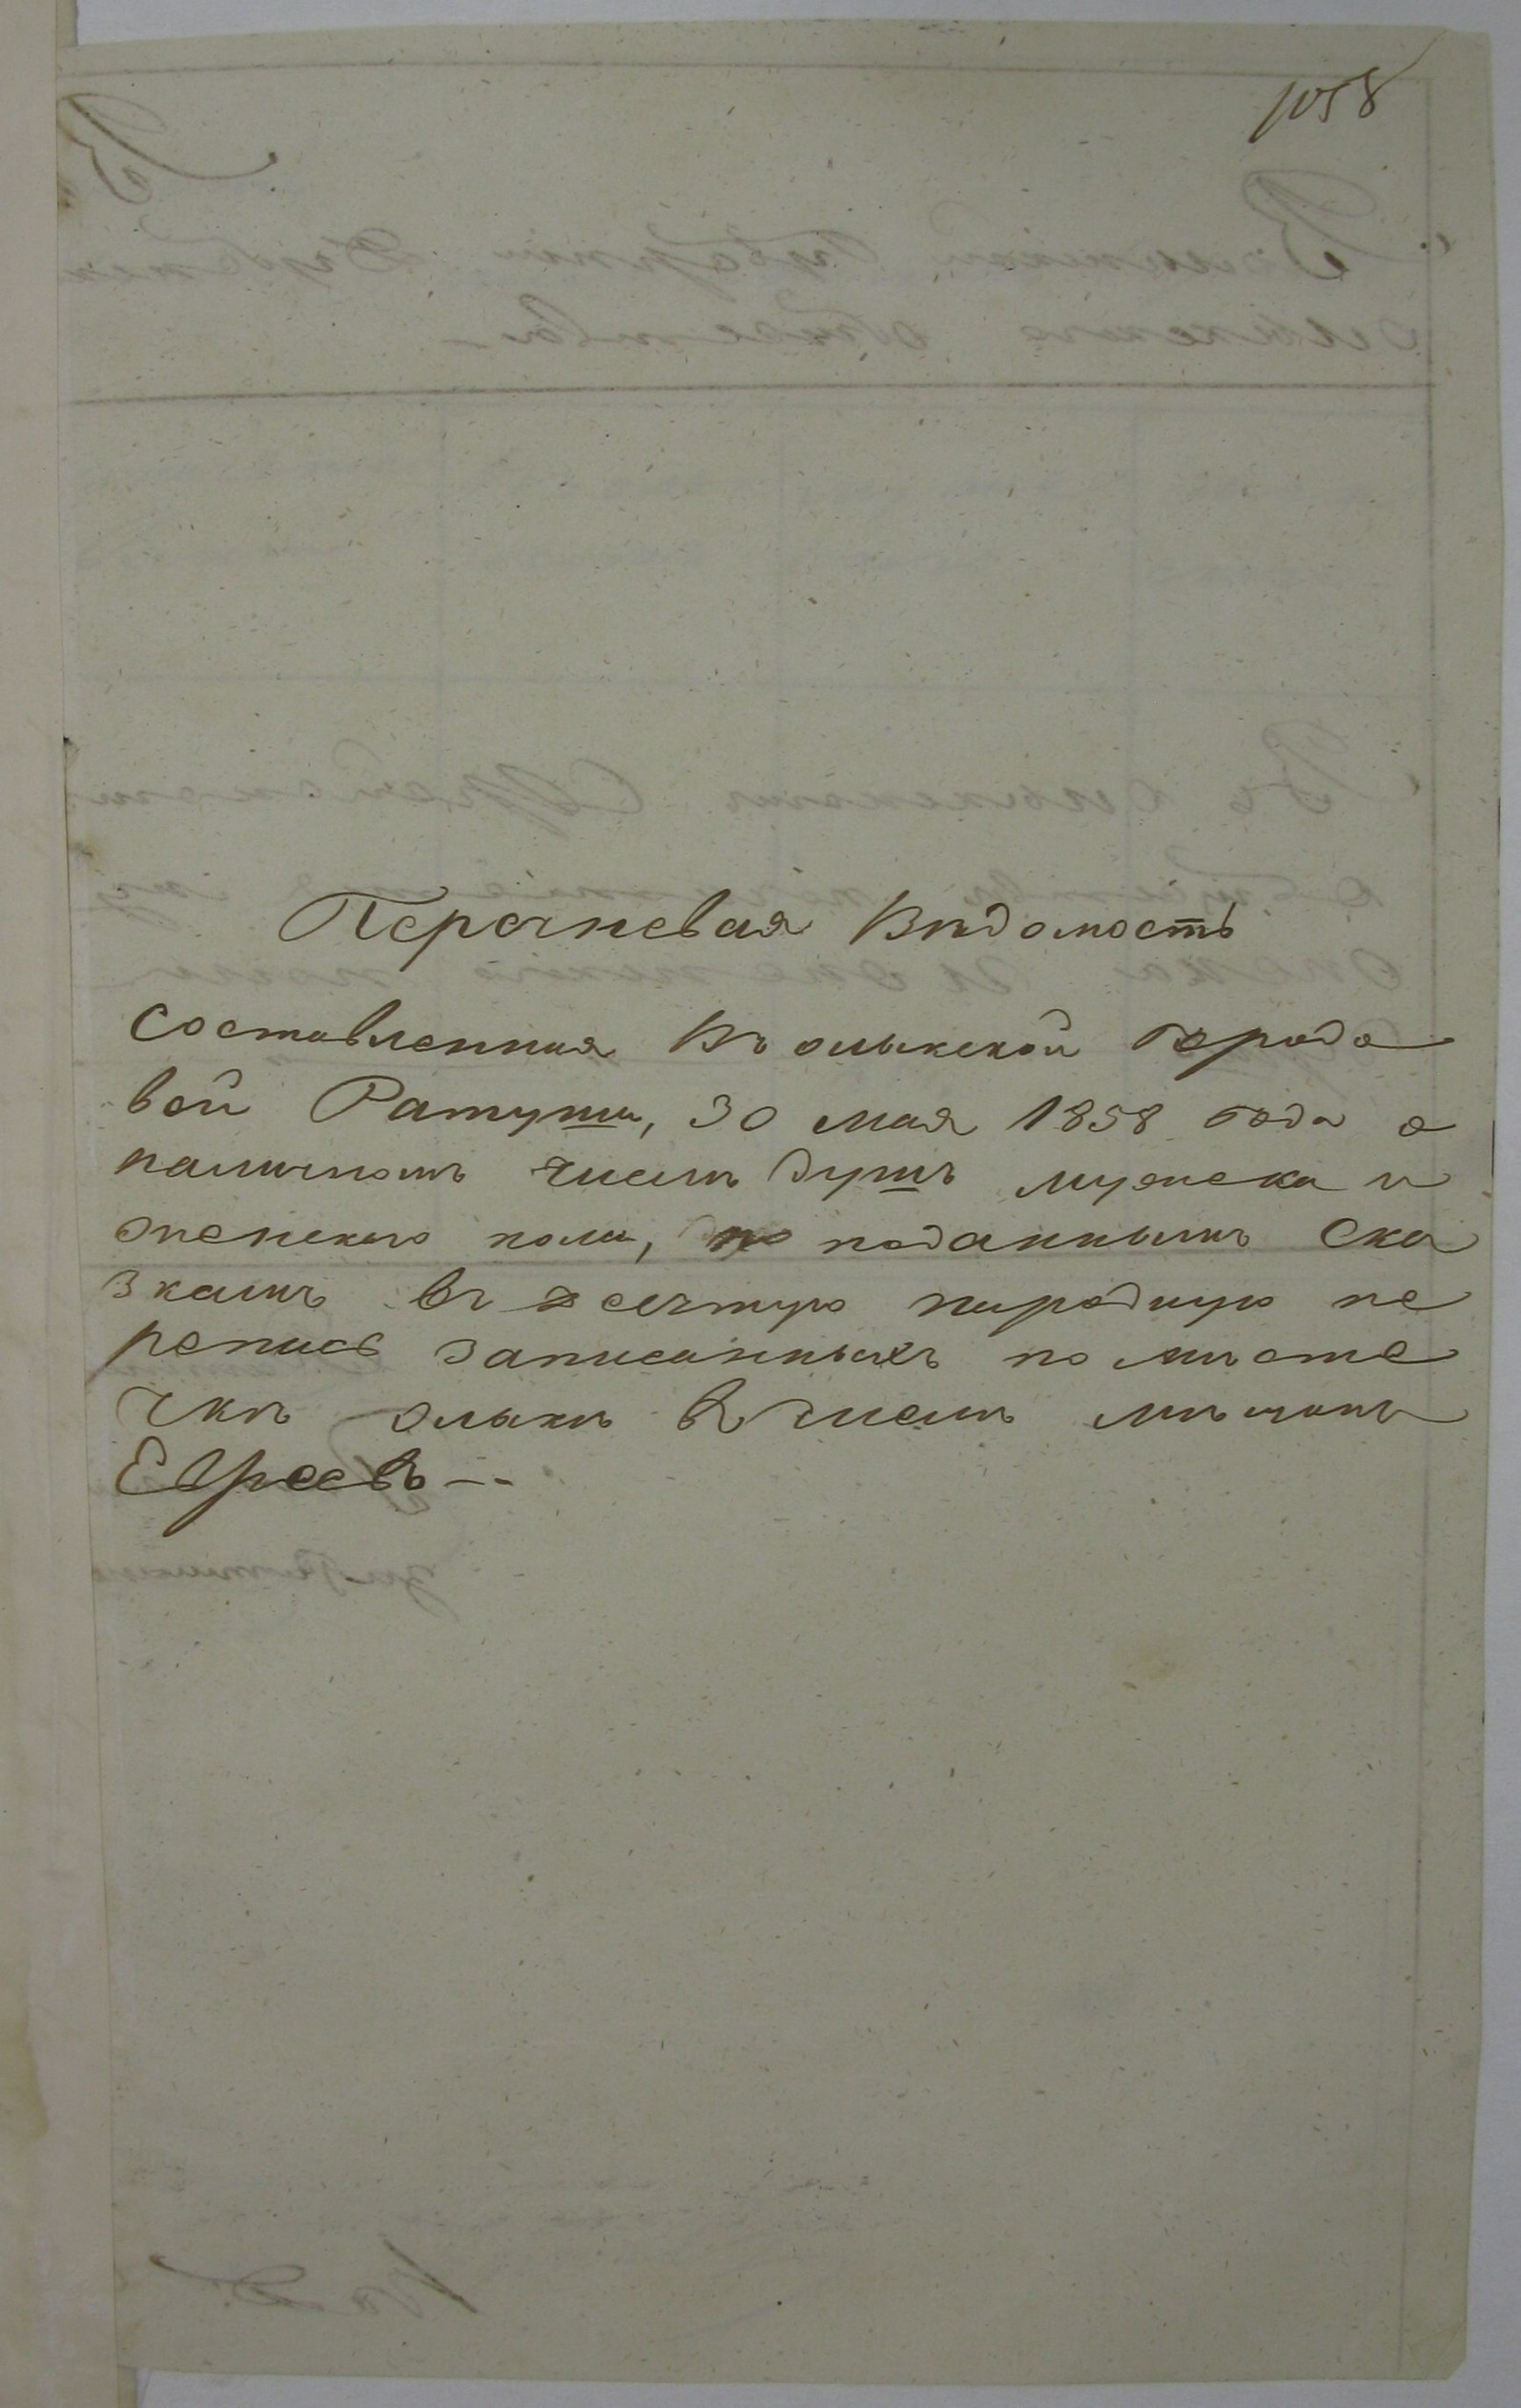 1058
Перечневая Вѣдомость
составленная Въ олыкской Городо
вой Ратушѣ, 30 мая 1858 года о
наличномъ числѣ душъ мужеска и
женскаго пола, по поданнымъ ска
зкамъ въ десятую народную пе
репись записанныхъ по мѣсте
чкѣ олыкѣ въ числѣ мѣщанъ
Евреевъ --